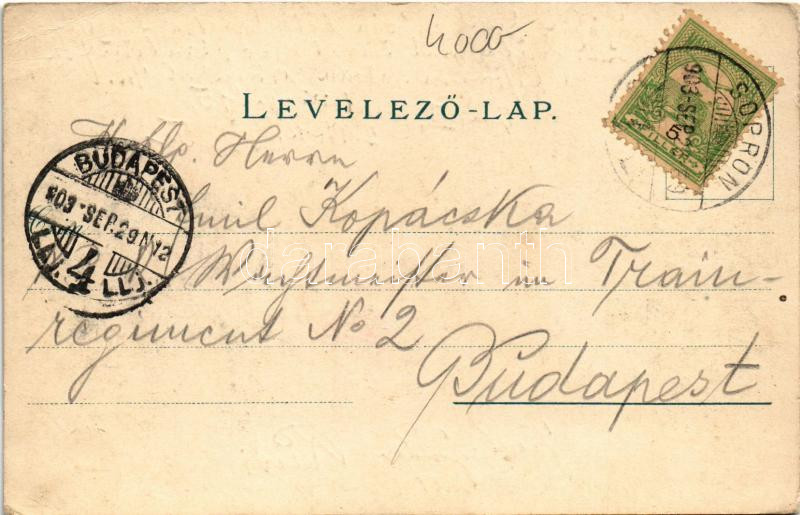 4000
LEVELEZŐ-LAP.
SOPRON
903 SEP
5
FILLÉR
BUDAPEST
903 SEP. 29. N12
4
Herrn
Emil Kopácska
Wachtmeister im Train-
regiment No 2
Budapest
darabanth